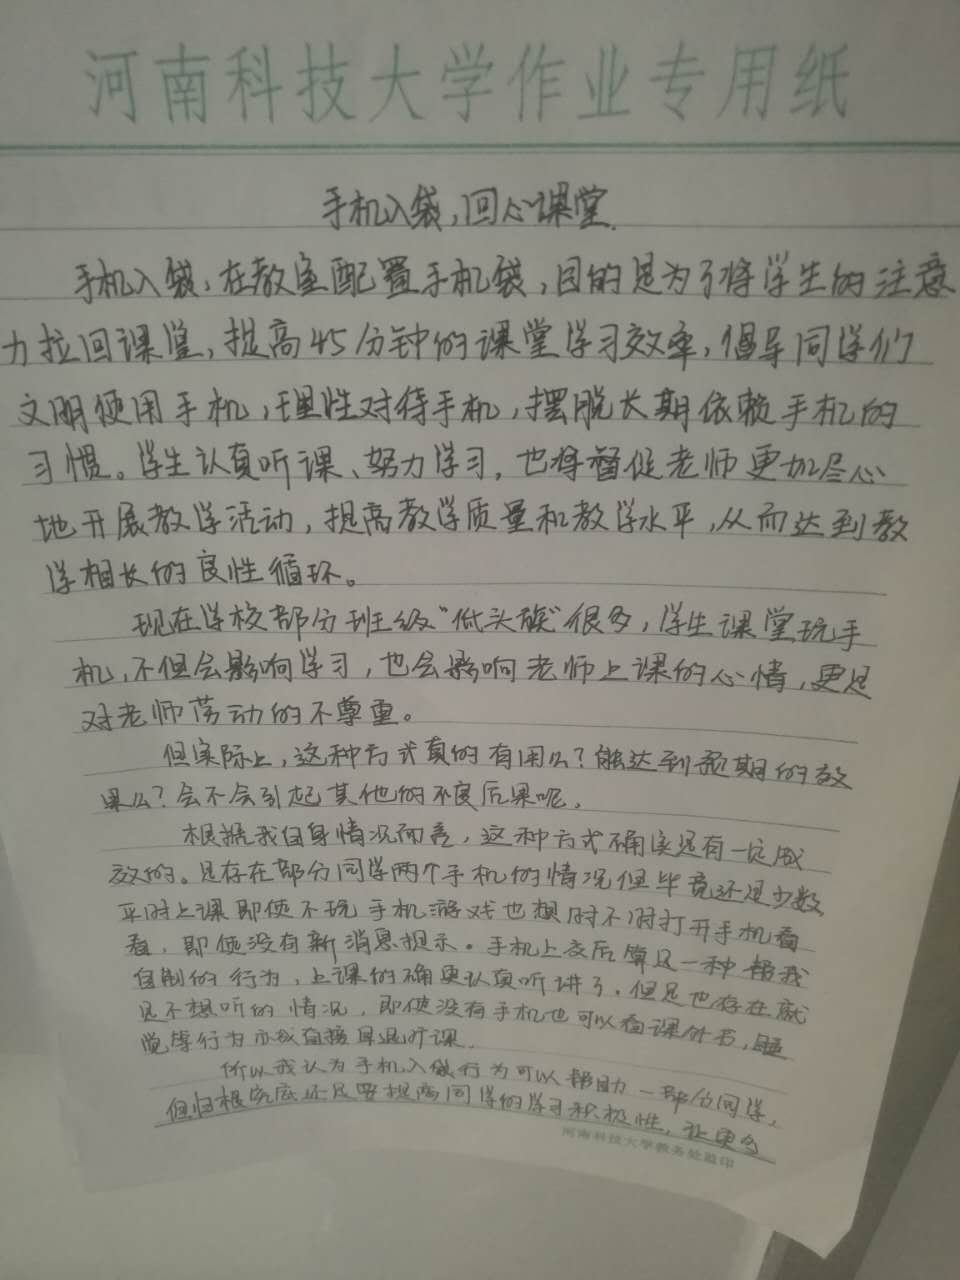 河南科技大学作业专用纸
手机入袋,回心课堂
手机入袋,在教室配置手机袋,目的是为了将学生的注意
力拉回课堂,提高45分钟的课堂学习效率,倡导同学们
文明使用手机,理性对待手机,摆脱长期依赖手机的
习惯。学生认真听课、努力学习,也将督促老师更加尽心
地开展教学活动,提高教学质量和教学水平,从而达到教
学相长的良性循环。
现在学校部分班级“低头族”很多,学生课堂玩手
机,不但会影响学习,也会影响老师上课的心情,更是
对老师劳动的不尊重。
但实际上,这种方式真的有用么?能达到预期的效
果么?会不会引起其他的不良后果呢。
根据我自身情况而言,这种方式确实是有一定成
效的。是存在部分同学两个手机的情况但毕竟还是少数
平时上课即使不玩手机游戏也想时不时打开手机看
看,即使没有新消息提示。手机上交后算是一种帮我
自制的行为,上课的确更认真听讲了。但是也存在就
是不想听的情况,即使没有手机也可以看课外书,睡
觉等行为亦或直接早退旷课。
所以我认为手机入袋行为可以帮助一部分同学,
但归根究底还是要提高同学的学习积极性,让更多
河南科技大学教务处监印